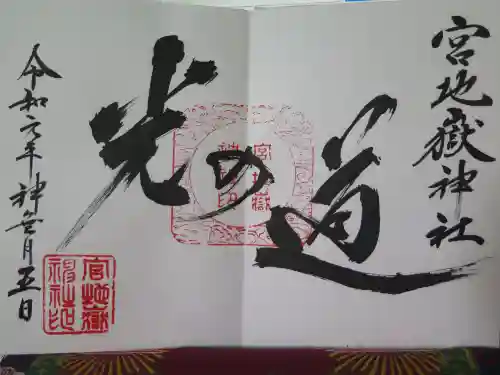 宮地嶽神社
光の道
令和元年神無月五日
宮地嶽神社印
宮地嶽